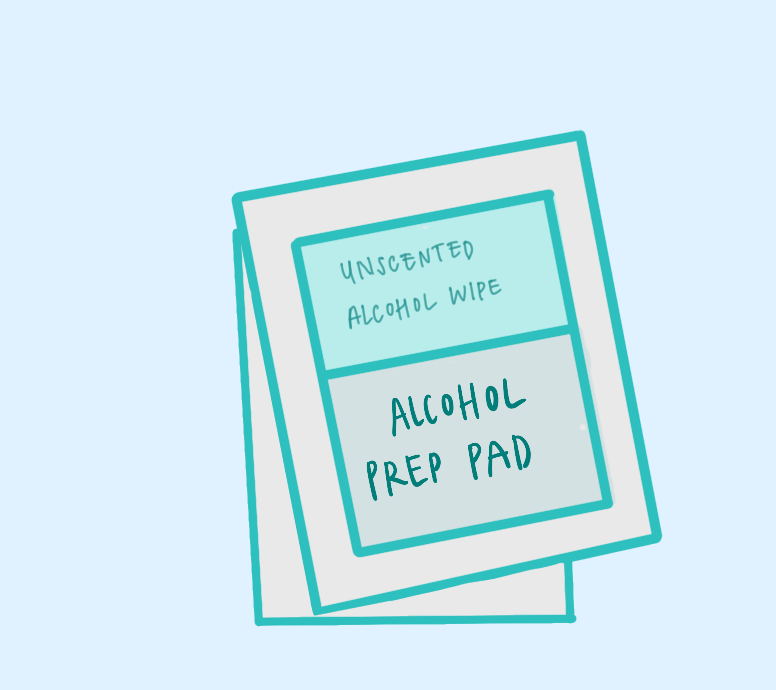 UNSCENTED
ALCOHOL WIPE
ALCOHOL
PREP PAD